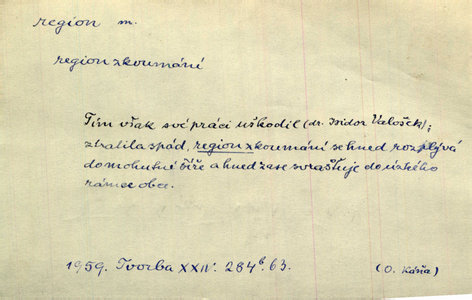 region m.
region zkoumání
Tím však své práci uškodil (dr. Isidor Valošek);
ztratila spád, region zkoumání se hned rozplývá
do mohutné šíře a hned zase svrašťuje do úzkého
rámce obce.
1959. Tvorba XXIV. 284 b. 63. (O. Káňa)